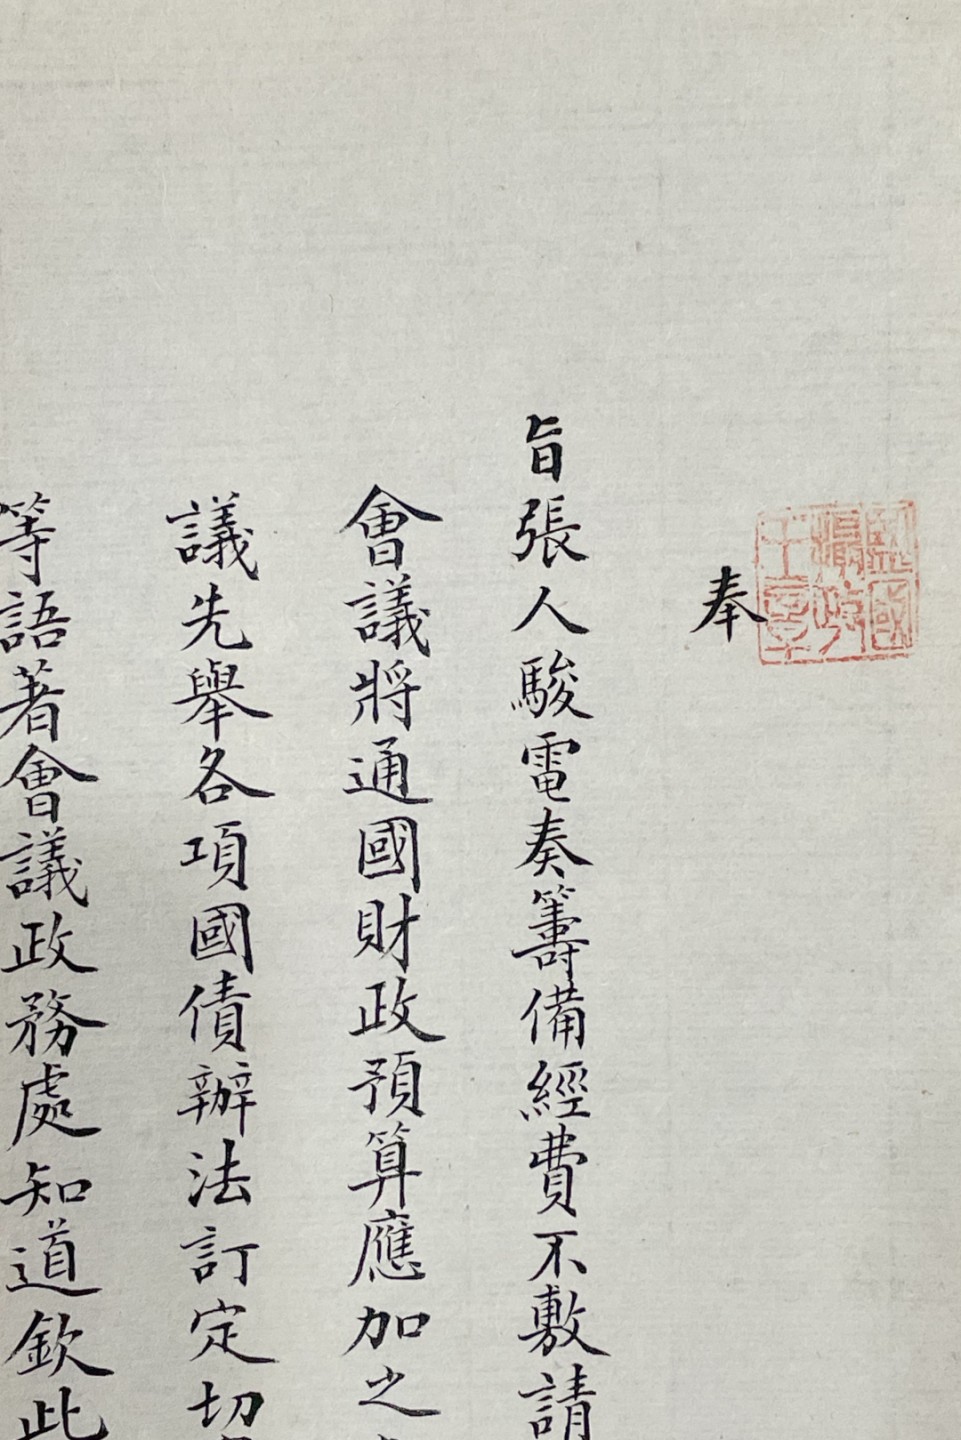 監國攝政王章
奉
旨張人駿電奏籌備經費不敷請
會議將通國財政預算應加之
議先舉各項國債辦法訂定切
等語著會議政務處知道欽此